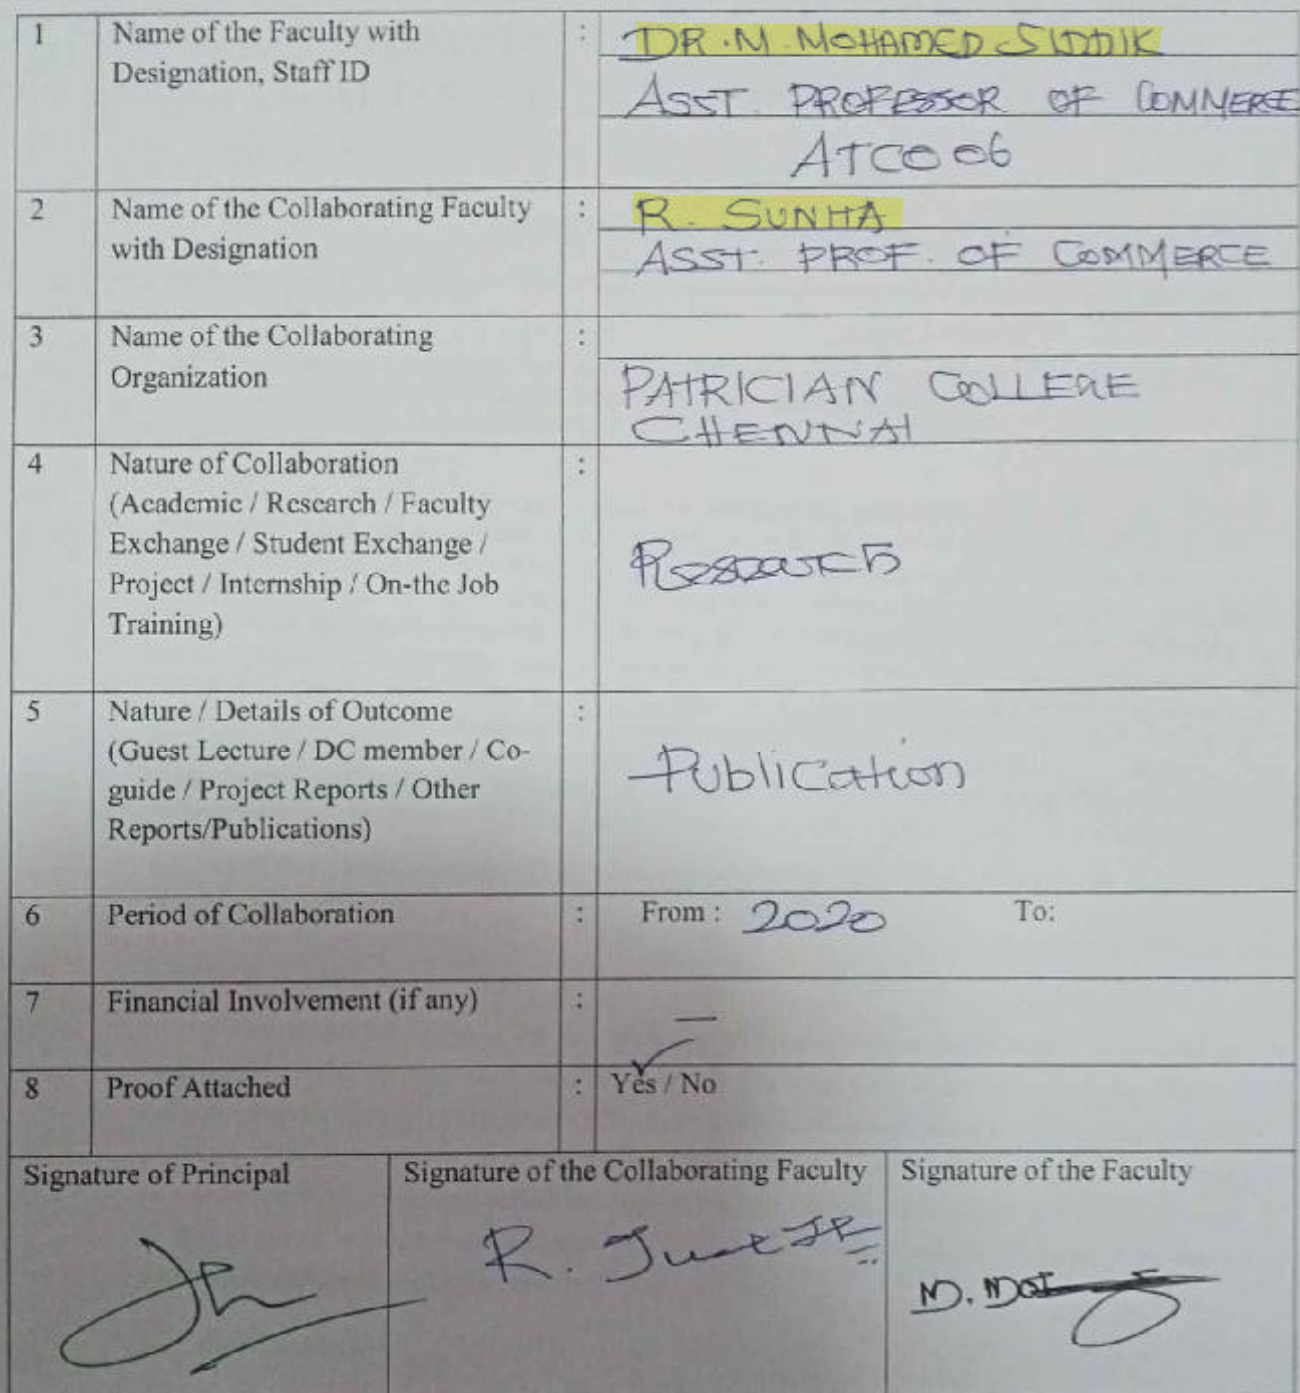 1 Name of the Faculty with : DR. M. MOHAMED SIDDIK
Designation, Staff ID ASST. PROFESSOR OF COMMERCE
ATCO06
2 Name of the Collaborating Faculty : R. SUNHA
with Designation ASST. PROF. OF COMMERCE
3 Name of the Collaborating :
Organization PATRICIAN COLLEGE
CHENNAI
4 Nature of Collaboration :
(Academic / Research / Faculty
Exchange / Student Exchange / Research
Project / Internship / On-the Job
Training)
5 Nature / Details of Outcome :
(Guest Lecture / DC member / Co- Publication
guide / Project Reports / Other
Reports/Publications)
6 Period of Collaboration : From : 2020 To:
7 Financial Involvement (if any) : —
8 Proof Attached : Yes / No
Signature of Principal Signature of the Collaborating Faculty Signature of the Faculty
R.
M.